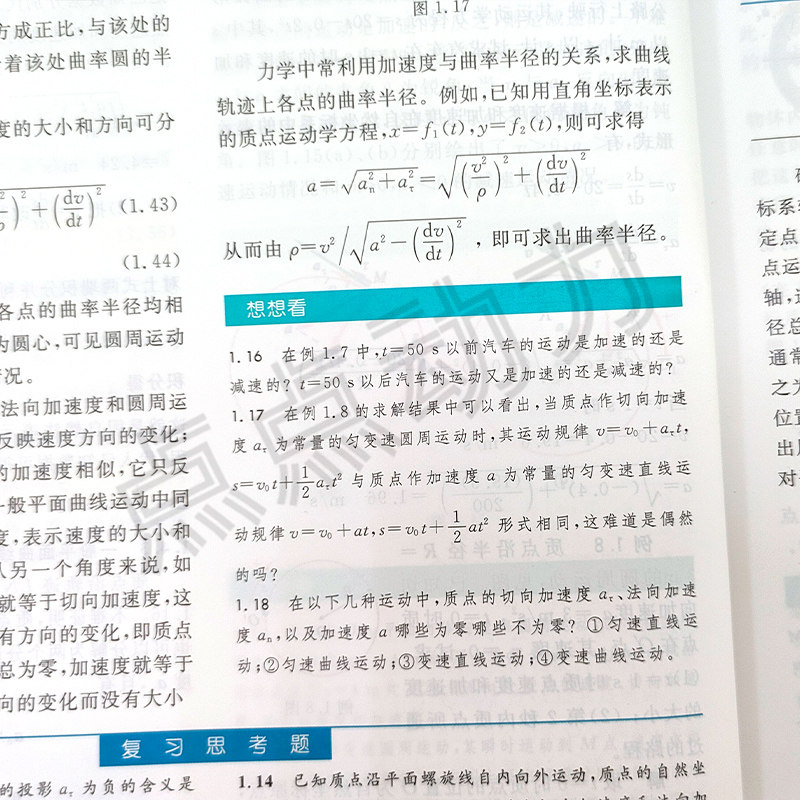 方成正比,与该处的
着该处曲率圆的半
度的大小和方向可分
(1.43)
(1.44)
各点的曲率半径均相
为圆心,可见圆周运动
情况。
法向加速度和圆周运
反映速度方向的变化;
的加速度相似,它只反
一般平面曲线运动中同
度,表示速度的大小和
从另一个角度来说,如
就等于切向加速度,这
有方向的变化,即质点
总为零,加速度就等于
向的变化而没有大小
图 1.17
力学中常利用加速度与曲率半径的关系,求曲线
轨迹上各点的曲率半径。例如,已知用直角坐标表示
的质点运动学方程,x=f₁(t),y=f₂(t),则可求得
a=√(aₙ²+a_τ²)=√((v²/ρ)²+(dv/dt)²)
从而由 ρ=v²/√(a²-(dv/dt)²) ,即可求出曲率半径。
想想看
1.16 在例 1.7 中,t=50 s 以前汽车的运动是加速的还是
减速的?t=50 s 以后汽车的运动又是加速的还是减速的?
1.17 在例 1.8 的求解结果中可以看出,当质点作切向加速
度 a_τ 为常量的匀变速圆周运动时,其运动规律 v=v₀+a_τt,
s=v₀t+½a_τt² 与质点作加速度 a 为常量的匀变速直线运
动规律 v=v₀+at,s=v₀t+½at² 形式相同,这难道是偶然
的吗?
1.18 在以下几种运动中,质点的切向加速度 a_τ、法向加速
度 aₙ,以及加速度 a 哪些为零哪些不为零?①匀速直线运
动;②匀速曲线运动;③变速直线运动;④变速曲线运动。
复习思考题
的投影 a_τ 为负的含义是
1.14 已知质点沿平面螺旋线自内向外运动,质点的自然坐
标系
定点
点运
轴,
径总
通常
之为
位置
出
对
点点动力